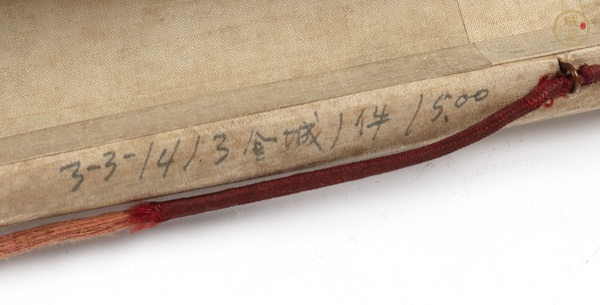 3-3-1413 金城 1件 15.00